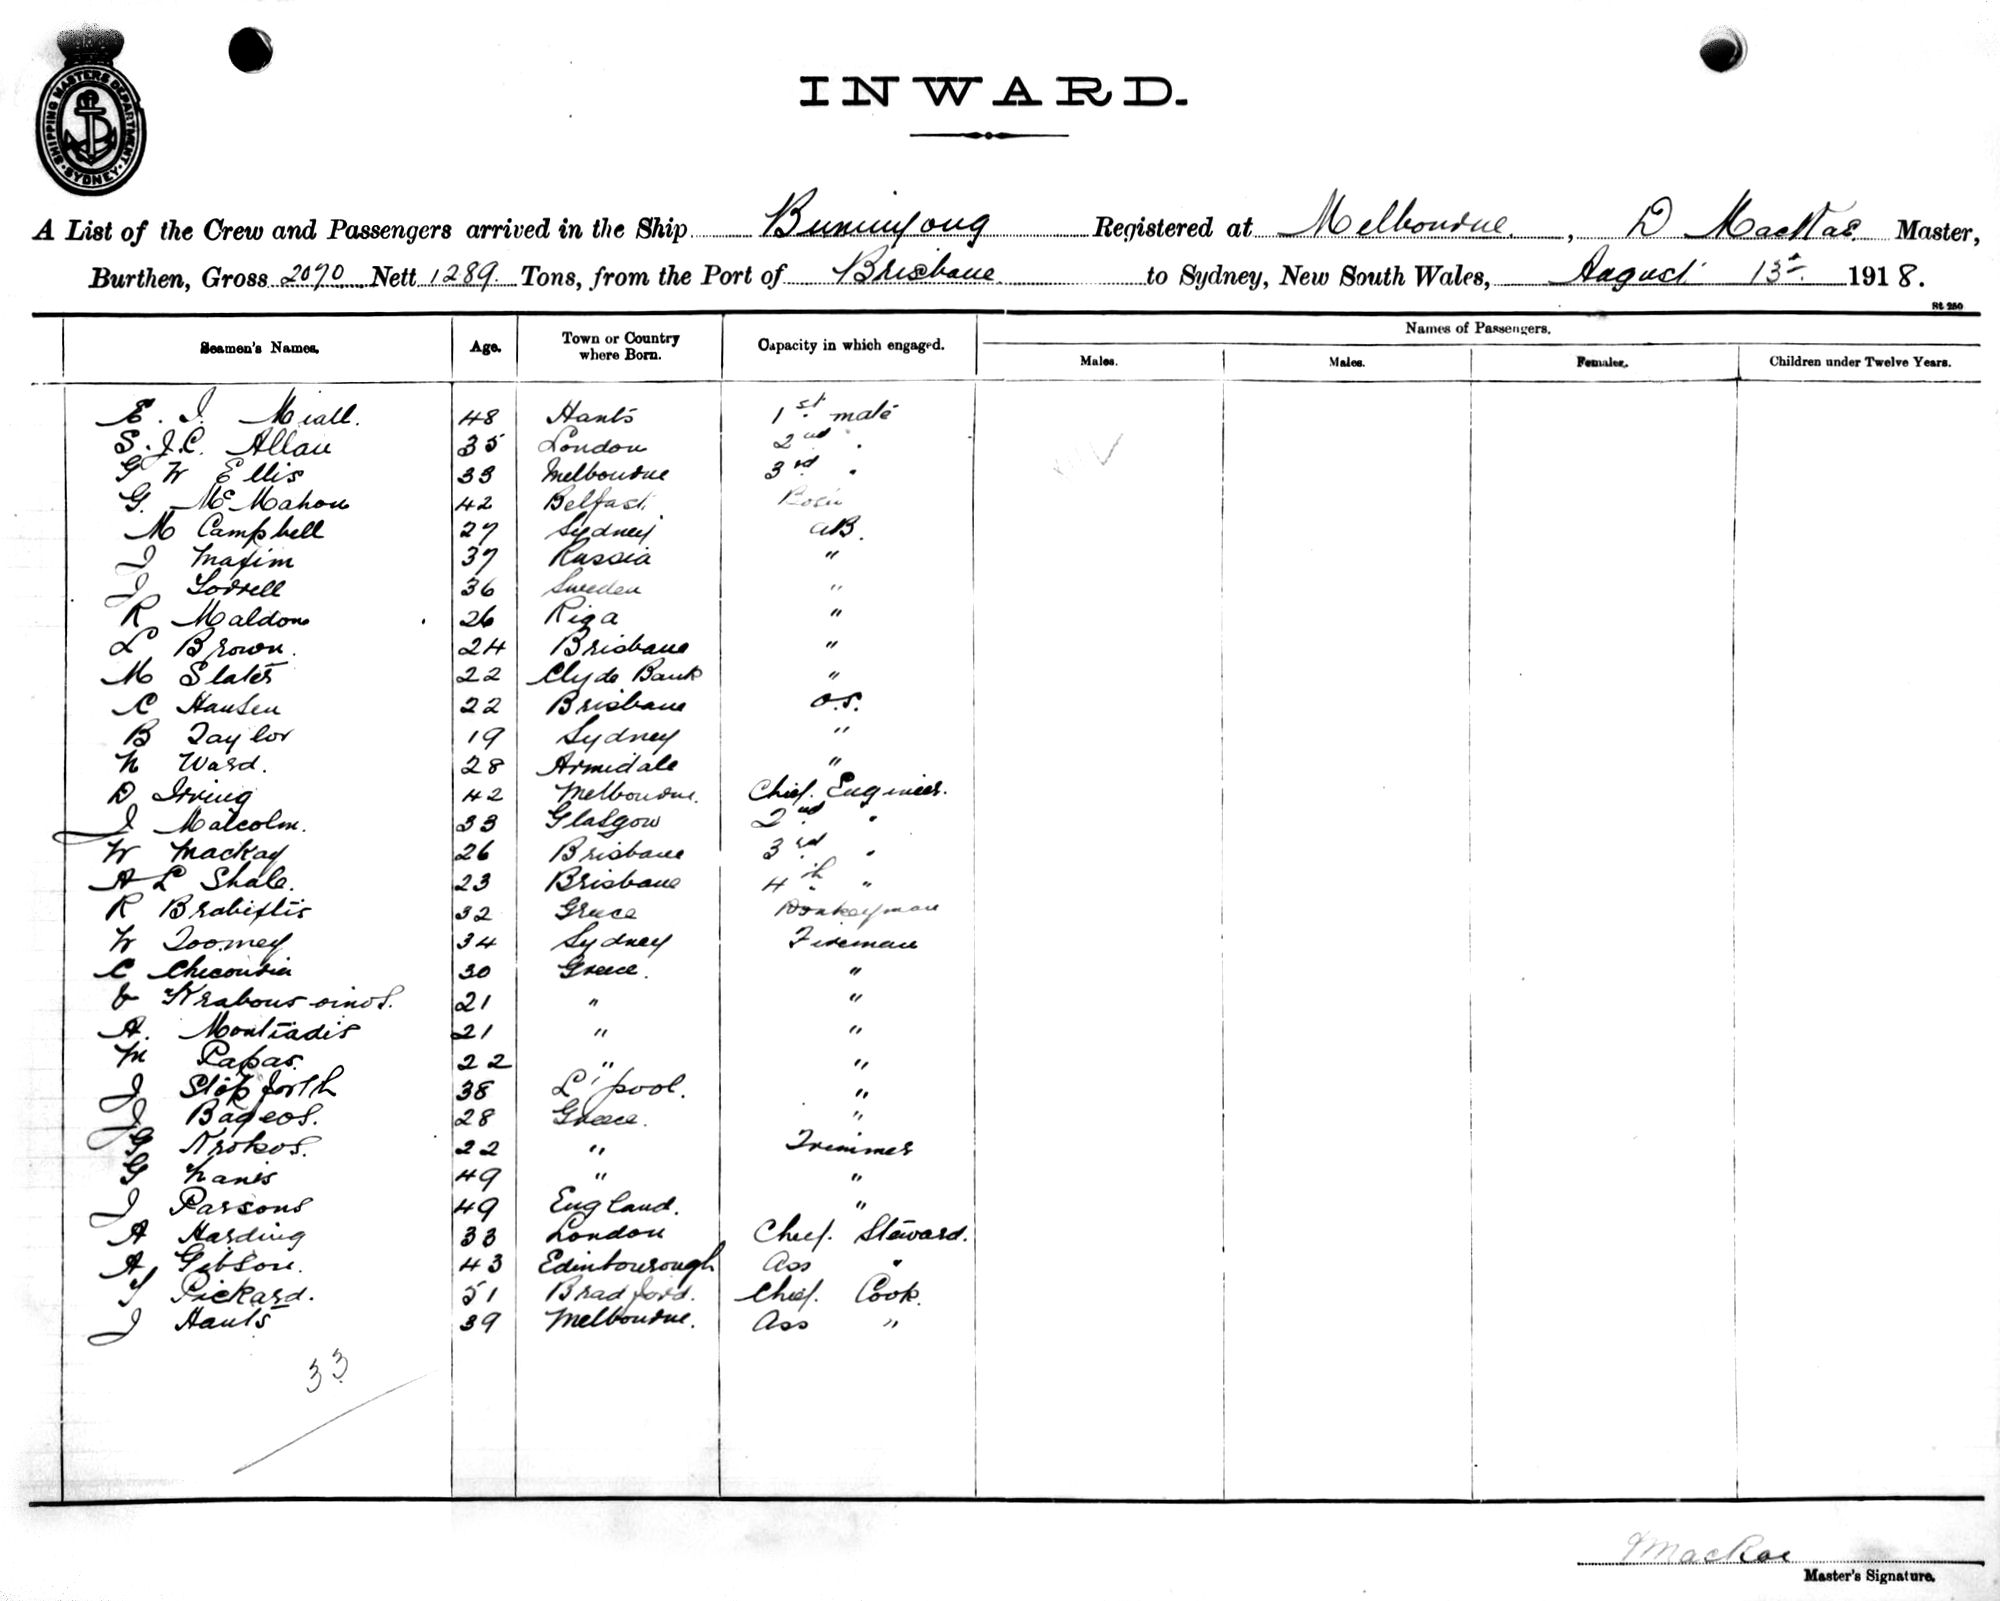 SHIPPING MASTERS DEPARTMENT
SYDNEY
INWARD.
A List of the Crew and Passengers arrived in the Ship Buninyong Registered at Melbourne, D MacRae. Master,
Burthen, Gross 2070 Nett 1289. Tons, from the Port of Brisbane to Sydney, New South Wales, August 13th 1918.
St 250
Seamen's Names. Age. Town or Country where Born. Capacity in which engaged. Names of Passengers.
Males. Males. Females. Children under Twelve Years.
E. J. Miall. 48 Hants 1st mate
S. J. C. Allan 35 London 2nd "
G W Ellis 33 Melbourne 3rd "
G. McMahon 42 Belfast. Bosn
M Campbell 27 Sydney AB.
J Maxim 37 Russia "
J Sorrell 36 Sweden "
R Maldon 26 Riga "
L Brown. 24 Brisbane "
M Slater 22 Clyde Bank "
C Hansen 22 Brisbane O.S.
B Taylor 19 Sydney "
N Ward. 28 Armidale "
D Irving 42 Melbourne. Chief. Engineer.
J Malcolm. 33 Glasgow 2nd "
W Mackay 26 Brisbane 3rd "
A L Shale. 23 Brisbane 4th "
R Brabiftis 32 Greece Donkeyman
W Toomey 34 Sydney Fireman
C Checouria 30 Greece. "
21 " "
A. Montiadis 21 " "
M Papas. 22 " "
J Stopforth 38 L'pool. "
J Bageos. 28 Greece. "
G 22 " Trimmer
G Nanis 49 " "
J Parsons 49 England. "
A Harding 33 London Chief. Steward.
A Gibson. 43 Edinbourough Ass "
T Pickard. 51 Bradford. Chief. Cook.
J Hants 39 Melbourne. Ass "
33
MacRae
Master's Signature.